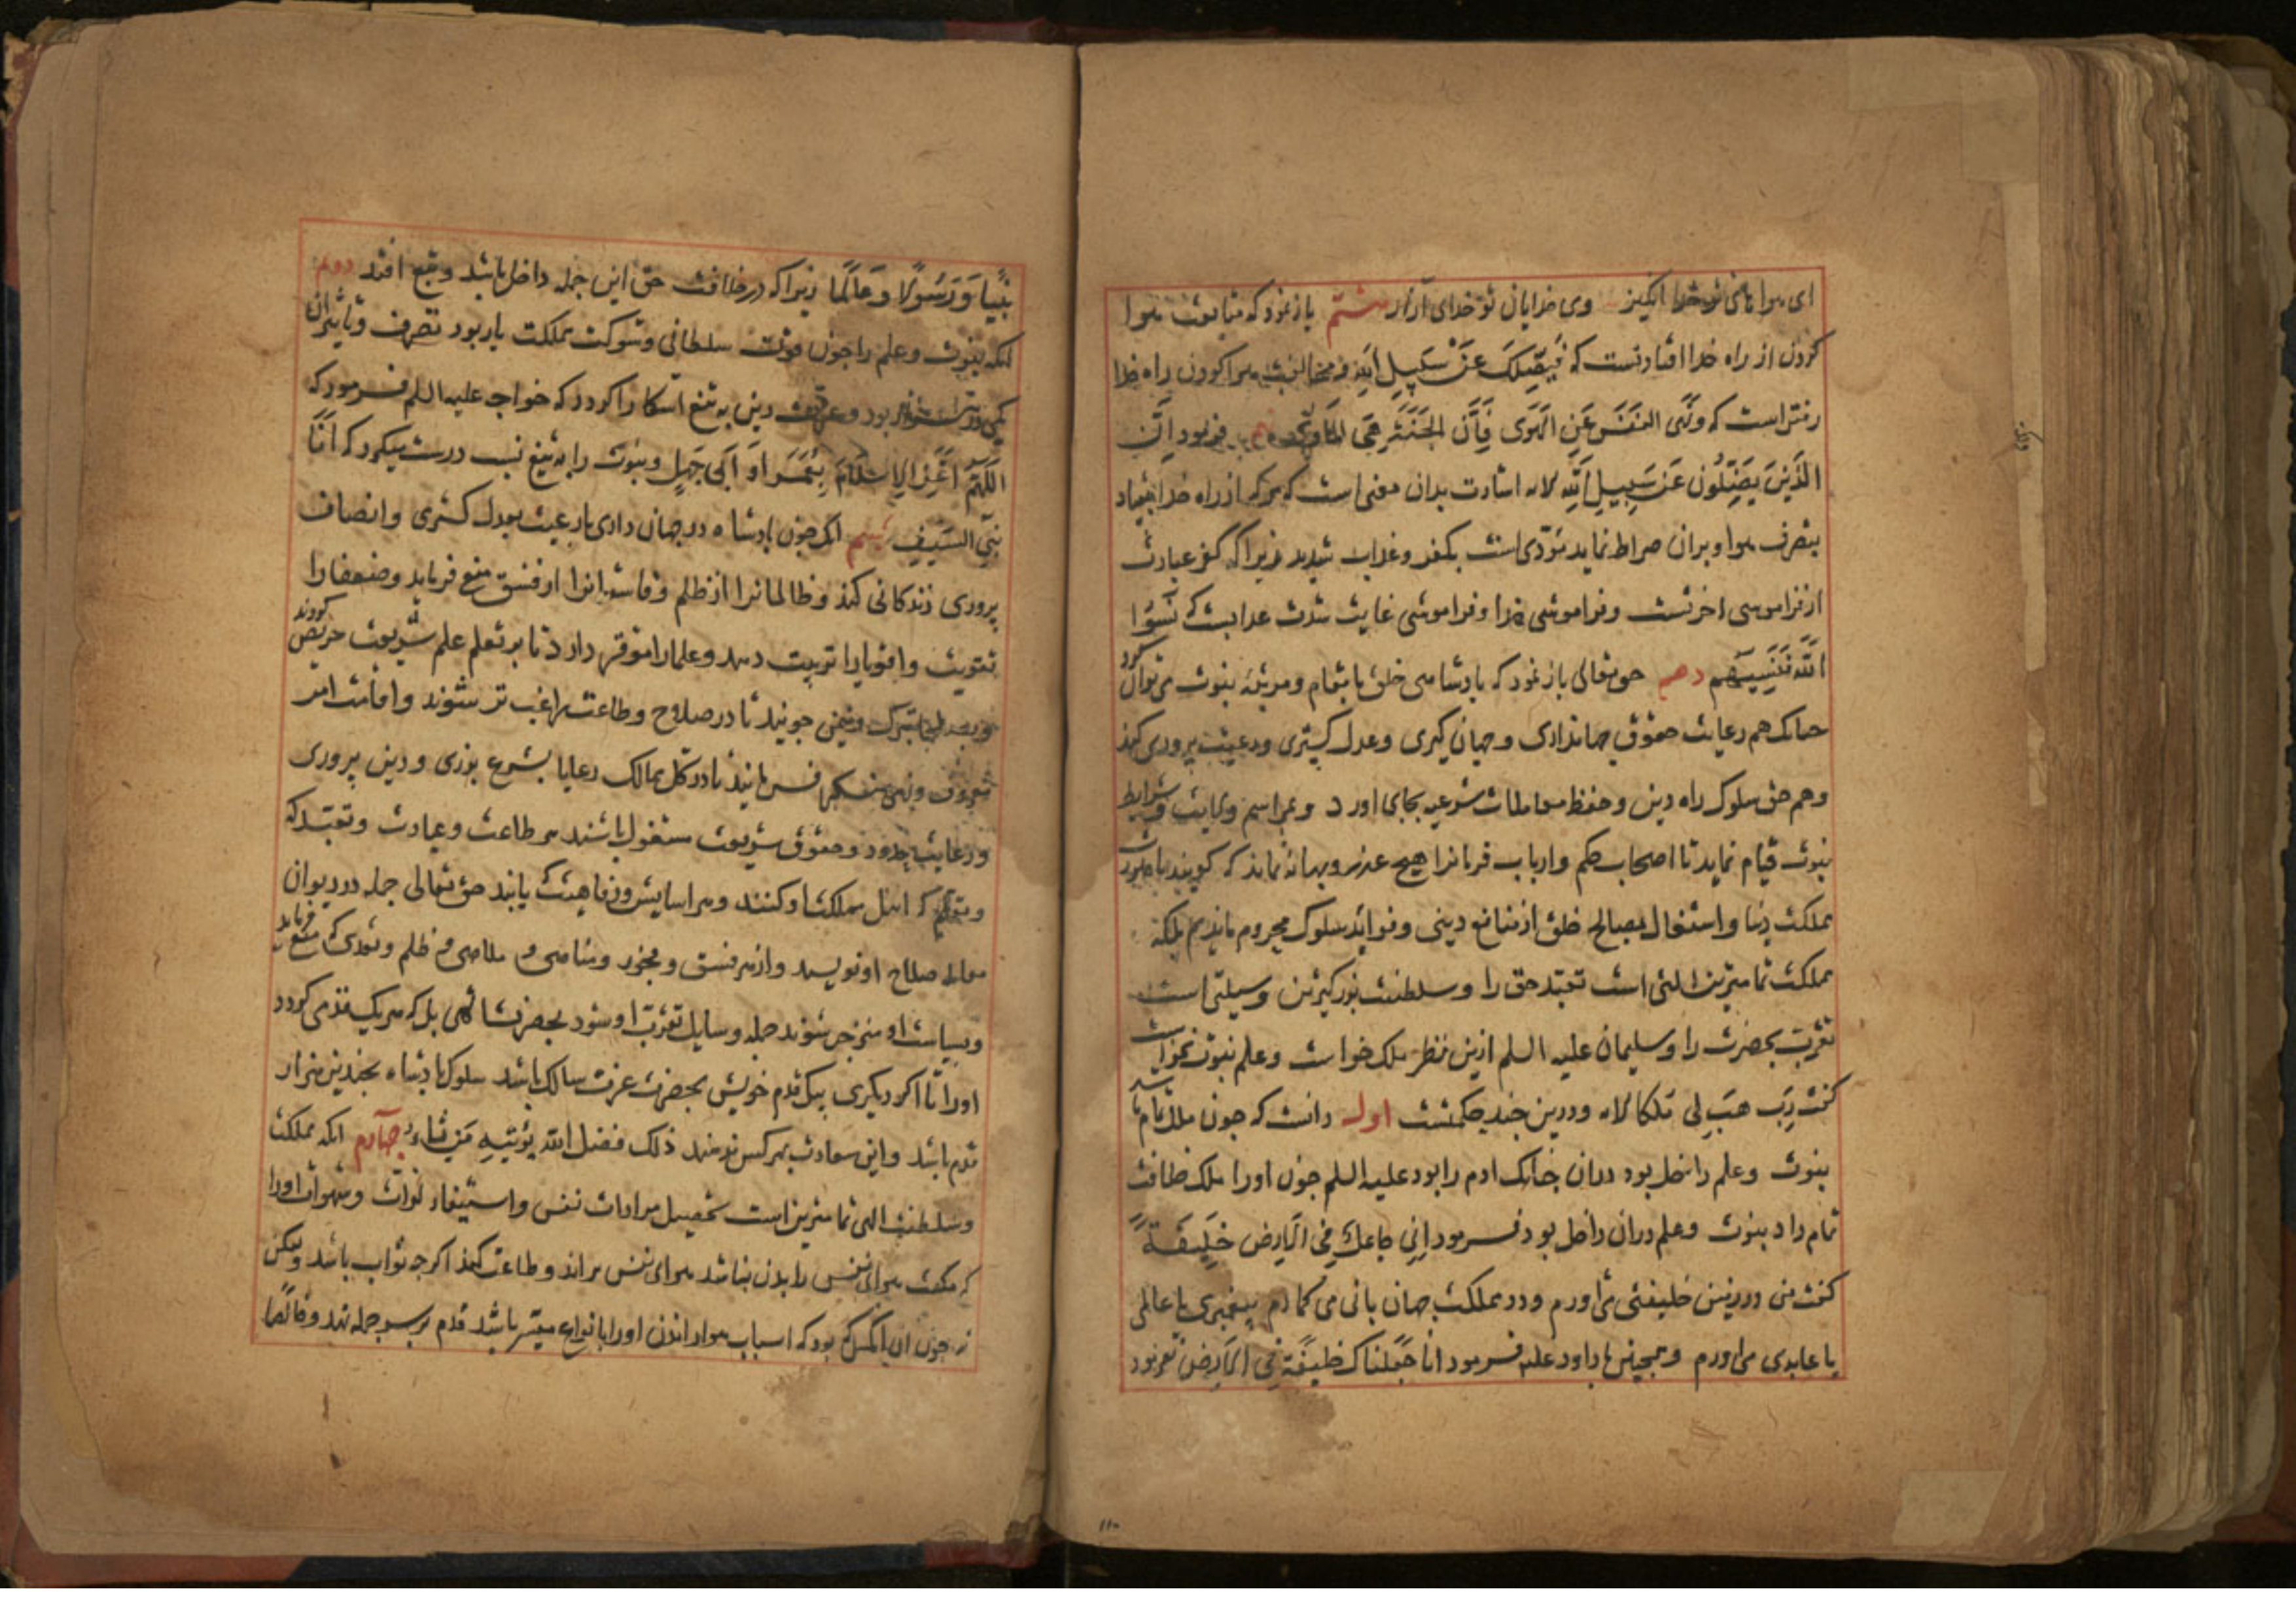 ای هوا تو خدا انگیز وی خدایان تو خدای آزار هشتم باز نمود که متابعت هوا
کردن از راه خدا افتادنست که فَیُضِلَّکَ عَنْ سَبِیلِ اللهِ و مخالفت هوا کردن راه خدا
رفتن است که وَنَهَی النَفْسَ عَنِ الهَوَی فَاِنَّ الجَنَّةَ هِیَ المَاوَی فرمود اِنَّ
الذَینَ یَضِلُّونَ عَن سَبِیلِ اللهِ الایه اشارت بدان معنی است که هر که از راه خدا بیفتاد
بتصرف هوا و بر آن صراط نماید مؤدی است بکفر و عذاب شدید زیرا که کفر عبارت
از فراموشی اخرتست و فراموشی خدا و فراموشی غایت شدت عذابست که نَسُوا
اللّٰهَ فَنَسِیَهُم دهم حق تعالی باز نمود که پادشاهی خلق با مقام و مرتبه نبوت می توان کرد
چنانک هم رعایت حقوق جهانداری و جهان گیری و عدل گستری و رعیت پروری کند
و هم حق سلوک راه دین و حفظ معاملات شرعیه بجای اورد و مراسم ولایت و شرایط
نبوت قیام نماید تا اصحاب حکم و ارباب فرمانرا هیچ عذر و بهانه نماند که گویند با
مملکت دنیا و اشتغال بمصالح خلق از منافع دینی و فواید سلوک محروم ماندیم بلکه
مملکت تمامترین التی است تعبّد حق را و سلطنت بزرگترین وسیلتی است
تقرب بحضرت را و سلیمان علیه السلم ازین نظر ملک خواست و علم نبوت نخواست
گفت رَبِّ هَبْ لِی مُلکا الایه و درین چند حکمتست اول دانست که چون ملک تمام باشد
نبوت و علم داخل بود در ان چنانک ادم را بود علیه السلم چون او را ملک خلافت
تمام داد نبوت و علم در ان داخل بود فرمود اِنّی جاعِلٌ فِی الاَرضِ خَلِیفَةً
گفت من در زمین خلیفتی می اورم و در مملکت جهان بانی می گمارم پیغمبری یا عالمی
یا عابدی می اورم و همچنین با داود علیه فرمود انا جَعَلناک خلیفَةً فِی الاَرضِ نفرمود
نَبِیًّا وَ رَسُولًا وَ حَاکِمًا زیرا که در خلافت حق این جمله داخل باشد و تبع افتد دوم
انکه نبوت و علم را چون قوت سلطانی و شوکت مملکت یار بود تصرف و تاثیر ان
یکی در بود و عزت دین به تیغ اشکارا کردد که خواجه علیه السلم فرمود که
اَللّهُمَّ اَعِزَّ الاِسْلَامَ بِعُمَرَ اَو اَبِی جَهْلٍ و نبوت را به تیغ نسب درست میکرد که اَنَا
نَبِیُّ السَیفِ سیم انک چون پادشاه در جهان داری با رعیت بعدل گستری و انصاف
پروری زندگانی کند و ظالمانرا از ظلم و فاسقانرا از فسق منع فرماید و ضعفا را
تقویت و اقویا را تربیت دهد و علما را موقر دارد تا بر تعلم علم شریعت حریص گردند
و تبرک و تیمن جوید تا در صلاح و طاعت راغب تر شوند و اقامت امر
معروف و نهی منکر فرمایند تا در کل ممالک رعایا بشرع ورزی و دین پروری
و رعایت حدود و حقوق شریعت مشغول باشند هر طاعت و عبادت و تعبد که
و تعلم که اهل مملکت او کنند و هر اسایش و رفاهیت که یابند حق تعالی جمله در دیوان
معامله صلاح او نویسد و از هر فسق و فجور و مناهی و ملاهی و ظلم و تعدی که منع فرماید
و بسیاست او منزجر شوند جمله وسایل تقرب او شود بحضرت الهی بل که هر یک قدمی گردد
او را تا اگر دیگری بیک قدم خویش بحضرت عزت سالک باشد سلوک پادشاه بچندین هزار
قدم باشد و این سعادت بهر کس ندهند ذلک فضل الله یؤتیهِ مَن یَشاءُ چهارم انکه مملکت
و سلطنت التی تمامترین است تحصیل مرادات نفس و استیفاء لذات و شهوات او را
که مکنت هوای نفس راندن نباشد هوای نفس نراند و طاعت کند اگر چه ثواب باشد ولیکن
نه چون ان کس بود که اسباب هوا راندن او را بانواع میسر باشد قدم بر سر جمله نهد و خالصا